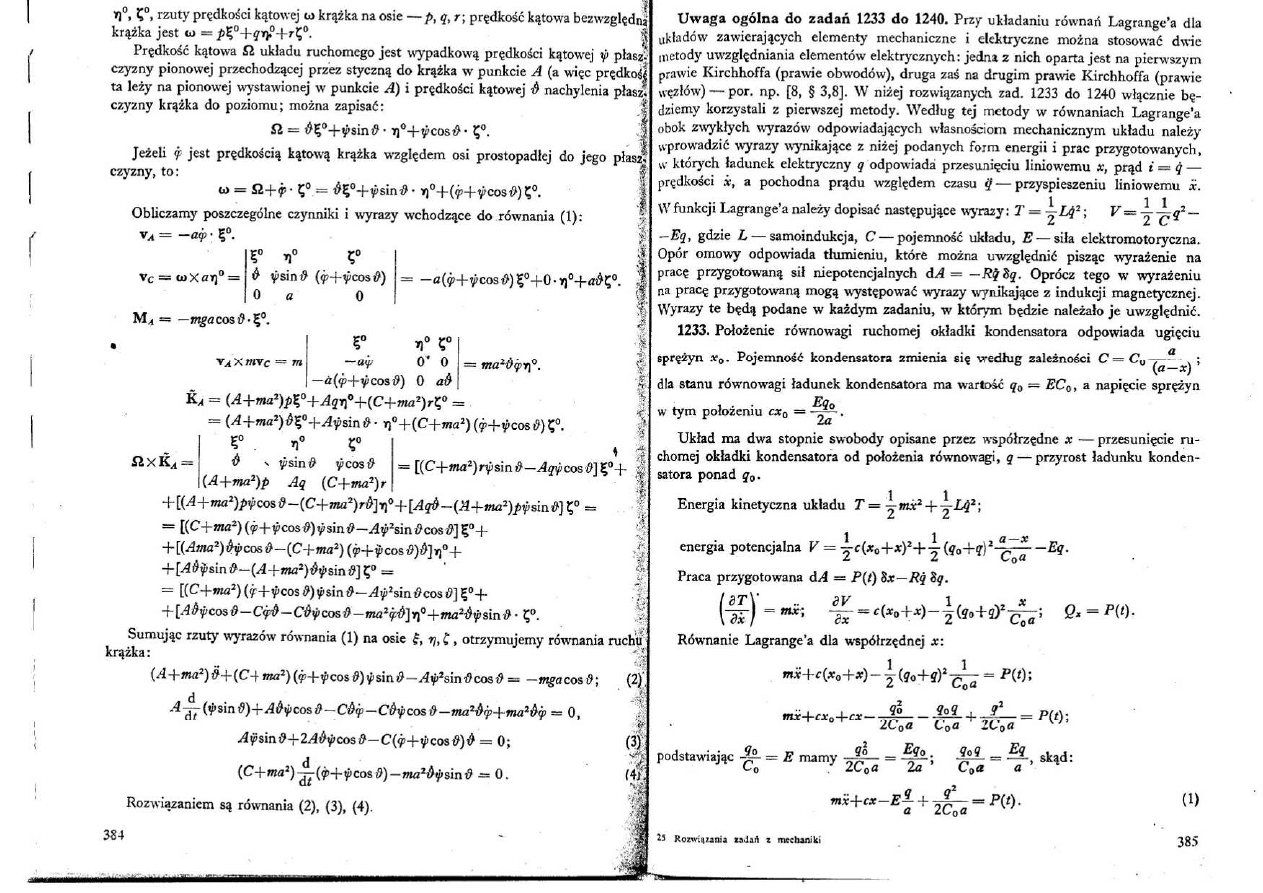 η°, ζ°, rzuty prędkości kątowej ω krążka na osie — p, q, r; prędkość kątowa bezwzględna
krążka jest ω = pξ°+qη°+rζ°.
Prędkość kątowa Ω układu ruchomego jest wypadkową prędkości kątowej ψ̇ płasz-
czyzny pionowej przechodzącej przez styczną do krążka w punkcie A (a więc prędkość
ta leży na pionowej wystawionej w punkcie A) i prędkości kątowej ϑ̇ nachylenia płasz-
czyzny krążka do poziomu; można zapisać:
Ω = ϑ̇ξ°+ψ̇sin ϑ · η°+ψ̇cos ϑ · ζ°.
Jeżeli φ̇ jest prędkością kątową krążka względem osi prostopadłej do jego płasz-
czyzny, to:
ω = Ω+φ̇ · ζ° = ϑ̇ξ°+ψ̇sin ϑ · η°+(φ̇+ψ̇cos ϑ) ζ°.
Obliczamy poszczególne czynniki i wyrazy wchodzące do równania (1):
v_A = −aφ̇ · ξ°.
v_C = ω×aη° = | ξ° η° ζ° | ϑ̇ ψ̇sin ϑ (φ̇+ψ̇cos ϑ) | 0 a 0 | = −a(φ̇+ψ̇cos ϑ) ξ°+0·η°+aϑ̇ζ°.
M_A = −mga cos ϑ·ξ°.
v_A×mv_C = m | ξ° η° ζ° | −aψ̇ 0 0 | −a(φ̇+ψ̇cos ϑ) 0 aϑ̇ | = ma²ϑ̇φ̇η°.
K̃_A = (A+ma²)pξ°+Aqη°+(C+ma²)rζ° =
= (A+ma²) ϑ̇ξ°+Aψ̇sin ϑ · η°+(C+ma²) (φ̇+ψ̇cos ϑ) ζ°.
Ω×K̃_A = | ξ° η° ζ° | ϑ̇ ψ̇sin ϑ ψ̇cos ϑ | (A+ma²)p Aq (C+ma²)r | = [(C+ma²)rψ̇sin ϑ−Aqψ̇cos ϑ] ξ°+
+[(A+ma²)pψ̇cos ϑ−(C+ma²)rϑ̇]η°+[Aqϑ̇−(A+ma²)pψ̇sin ϑ] ζ° =
= [(C+ma²) (φ̇+ψ̇cos ϑ)ψ̇sin ϑ−Aψ̇²sin ϑ cos ϑ] ξ°+
+[(Ama²)ϑ̇ψ̇cos ϑ−(C+ma²) (φ̇+ψ̇cos ϑ)ϑ̇] η°+
+[Aϑ̇ψ̇sin ϑ−(A+ma²)ϑ̇ψ̇sin ϑ] ζ° =
= [(C+ma²) (φ̇+ψ̇cos ϑ)ψ̇sin ϑ−Aψ̇²sin ϑ cos ϑ] ξ°+
+[Aϑ̇ψ̇cos ϑ−Cφ̇ϑ̇−Cϑ̇ψ̇cos ϑ−ma²φ̇ϑ̇]η°+ma²ϑ̇ψ̇sin ϑ · ζ°.
Sumując rzuty wyrazów równania (1) na osie ξ, η, ζ, otrzymujemy równania ruchu
krążka:
(A+ma²) ϑ̈+(C+ma²) (φ̇+ψ̇cos ϑ)ψ̇sin ϑ−Aψ̇²sin ϑ cos ϑ = −mga cos ϑ; (2)
A d/dt (ψ̇sin ϑ)+Aϑ̇ψ̇cos ϑ−Cϑ̇φ̇−Cϑ̇ψ̇cos ϑ−ma²ϑ̇φ̇+ma²ϑ̇φ̇ = 0,
Aψ̈sin ϑ+2Aϑ̇ψ̇cos ϑ−C(φ̇+ψ̇cos ϑ)ϑ̇ = 0; (3)
(C+ma²) d/dt (φ̇+ψ̇cos ϑ)−ma²ϑ̇ψ̇sin ϑ = 0. (4)
Rozwiązaniem są równania (2), (3), (4).
384
Uwaga ogólna do zadań 1233 do 1240. Przy układaniu równań Lagrange'a dla
układów zawierających elementy mechaniczne i elektryczne można stosować dwie
metody uwzględniania elementów elektrycznych: jedna z nich oparta jest na pierwszym
prawie Kirchhoffa (prawie obwodów), druga zaś na drugim prawie Kirchhoffa (prawie
węzłów) — por. np. [8, § 3,8]. W niżej rozwiązanych zad. 1233 do 1240 włącznie bę-
dziemy korzystali z pierwszej metody. Według tej metody w równaniach Lagrange'a
obok zwykłych wyrazów odpowiadających własnościom mechanicznym układu należy
wprowadzić wyrazy wynikające z niżej podanych form energii i prac przygotowanych,
w których ładunek elektryczny q odpowiada przesunięciu liniowemu x, prąd i = q̇ —
prędkości ẋ, a pochodna prądu względem czasu q̈ — przyspieszeniu liniowemu ẍ.
W funkcji Lagrange'a należy dopisać następujące wyrazy: T = 1/2 Lq̇²; V = 1/2 1/C q² −
−Eq, gdzie L — samoindukcja, C — pojemność układu, E — siła elektromotoryczna.
Opór omowy odpowiada tłumieniu, które można uwzględnić pisząc wyrażenie na
pracę przygotowaną sił niepotencjalnych dA = −Rq̇ δq. Oprócz tego w wyrażeniu
na pracę przygotowaną mogą występować wyrazy wynikające z indukcji magnetycznej.
Wyrazy te będą podane w każdym zadaniu, w którym będzie należało je uwzględnić.
1233. Położenie równowagi ruchomej okładki kondensatora odpowiada ugięciu
sprężyn x₀. Pojemność kondensatora zmienia się według zależności C = C_u a/(a−x) ;
dla stanu równowagi ładunek kondensatora ma wartość q₀ = EC₀, a napięcie sprężyn
w tym położeniu cx₀ = Eq₀/2a.
Układ ma dwa stopnie swobody opisane przez współrzędne x — przesunięcie ru-
chomej okładki kondensatora od położenia równowagi, q — przyrost ładunku konden-
satora ponad q₀.
Energia kinetyczna układu T = 1/2 mẋ² + 1/2 Lq̇²;
energia potencjalna V = 1/2 c(x₀+x)² + 1/2 (q₀+q)² (a−x)/(C₀a) − Eq.
Praca przygotowana dA = P(t) δx−Rq̇ δq.
(∂T/∂ẋ)˙ = mẍ; ∂V/∂x = c(x₀+x) − 1/2 (q₀+q)² x/(C₀a); Qₓ = P(t).
Równanie Lagrange'a dla współrzędnej x:
mẍ+c(x₀+x) − 1/2 (q₀+q)² 1/(C₀a) = P(t);
mẍ+cx₀+cx − q₀²/(2C₀a) − q₀q/(C₀a) + q²/(2C₀a) = P(t);
podstawiając q₀/C₀ = E mamy q₀²/(2C₀a) = Eq₀/2a; q₀q/(C₀a) = Eq/a, skąd:
mẍ+cx−E q/a + q²/(2C₀a) = P(t). (1)
25 Rozwiązania zadań z mechaniki 385